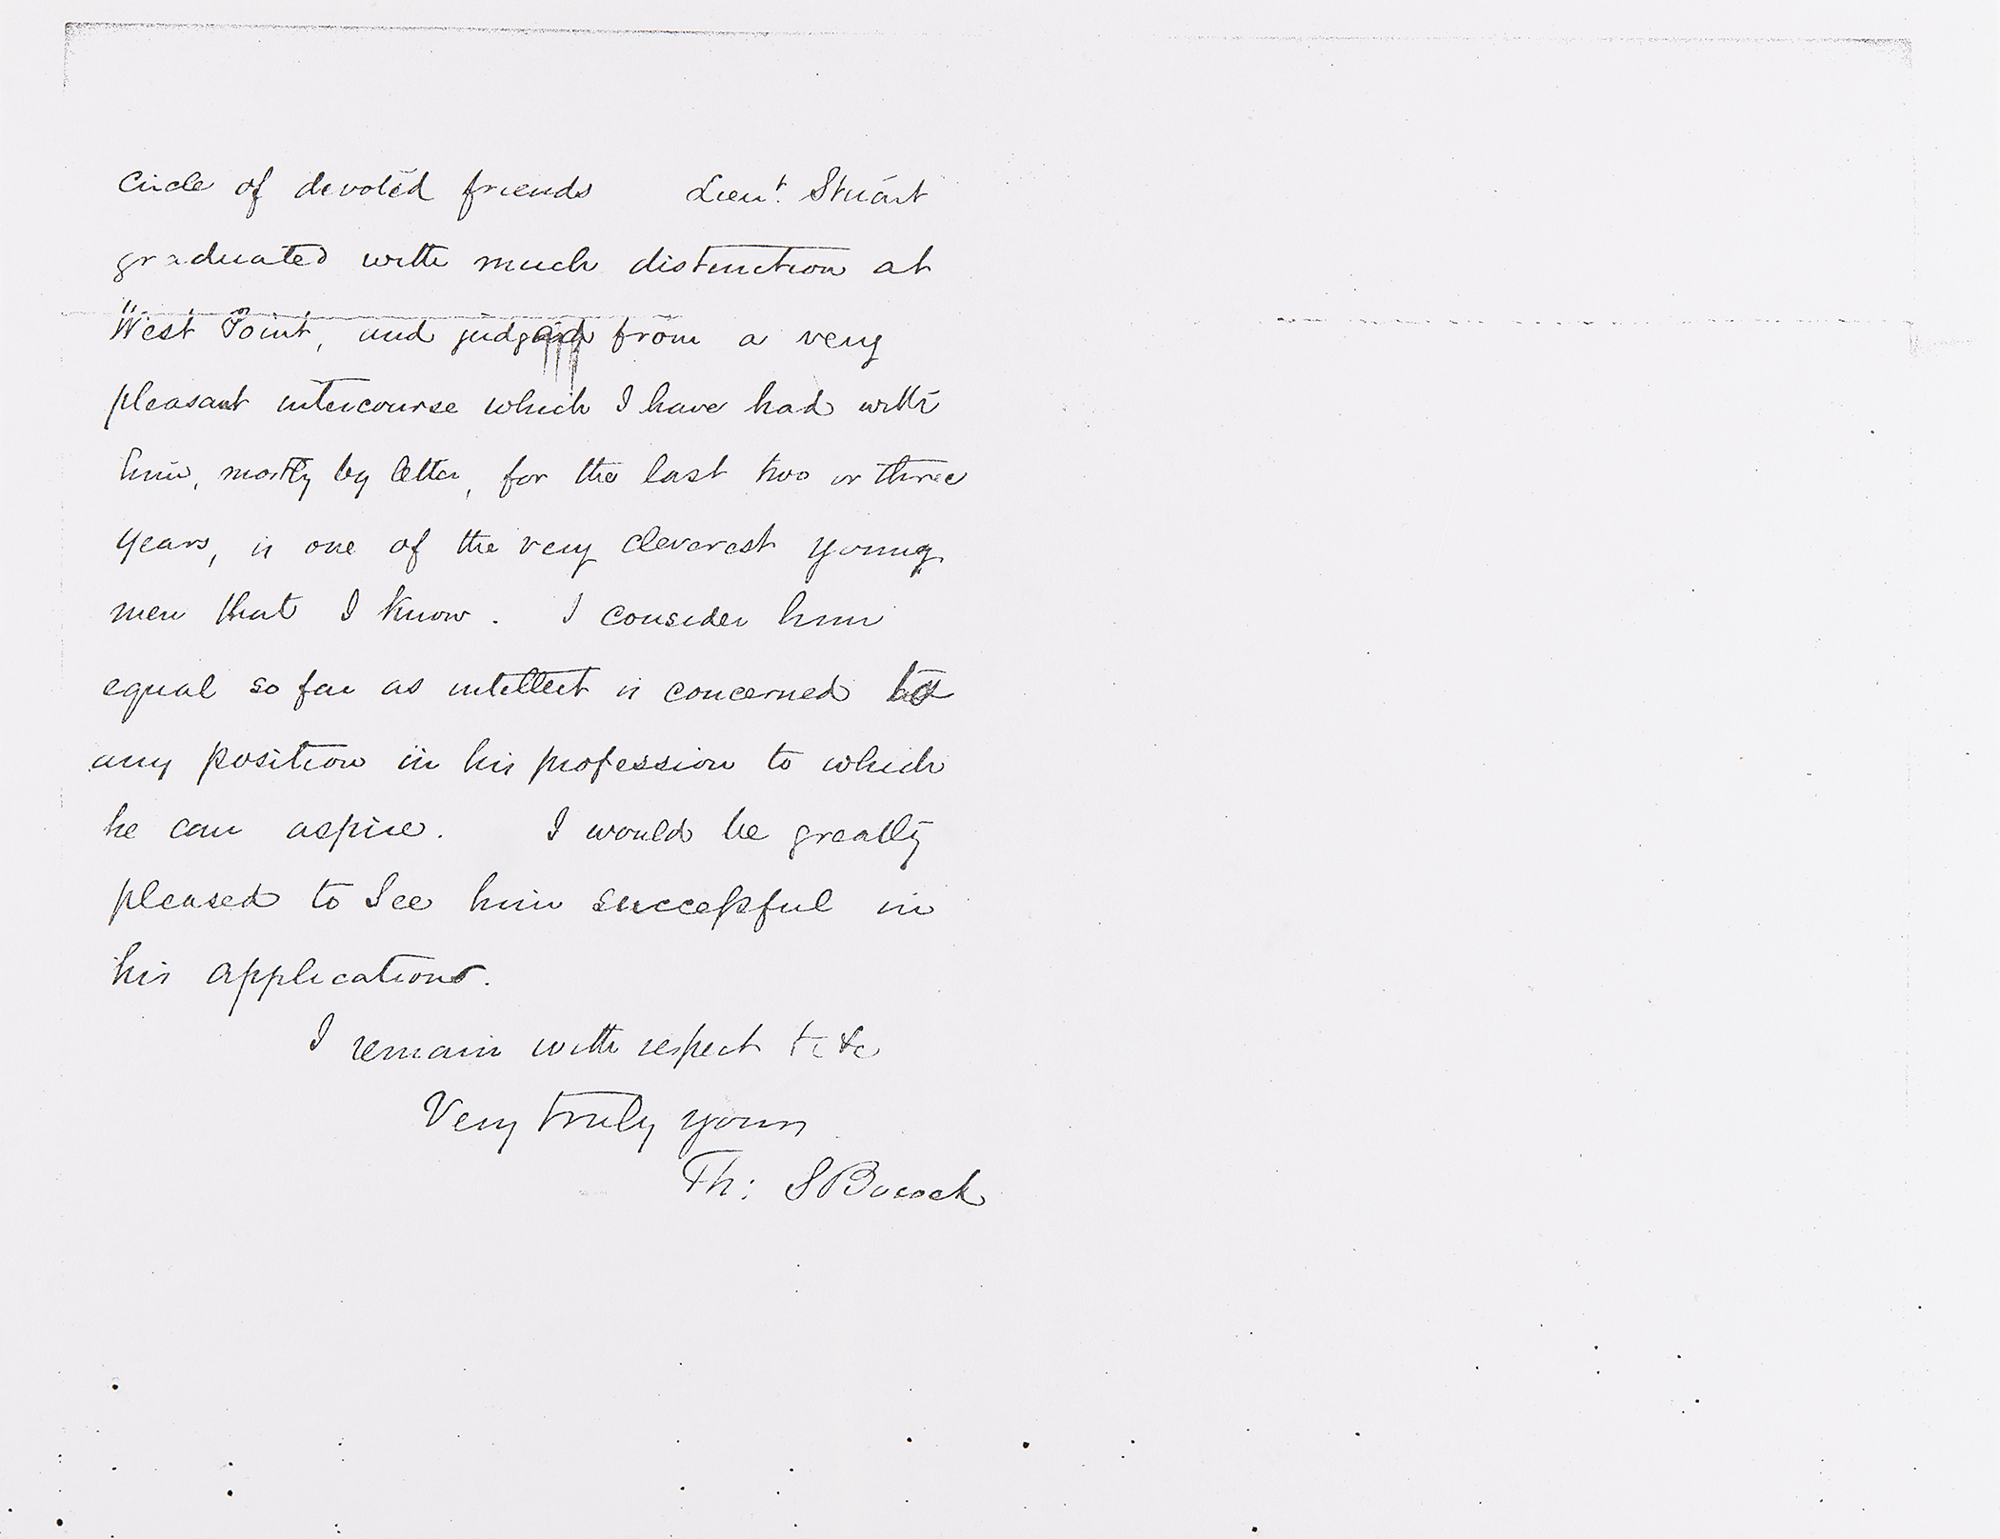 circle of devoted friends Lieut. Stuart
graduated with much distinction at
West Point, and judging from a very
pleasant intercourse which I have had with
him, mostly by letter, for the last two or three
years, is one of the very cleverest young
men that I know. I consider him
equal so far as intellect is concerned to
any position in his profession to which
he can aspire. I would be greatly
pleased to see him successful in
his applications.
I remain with respect &c &c
Very truly yours
Th: S Bocock